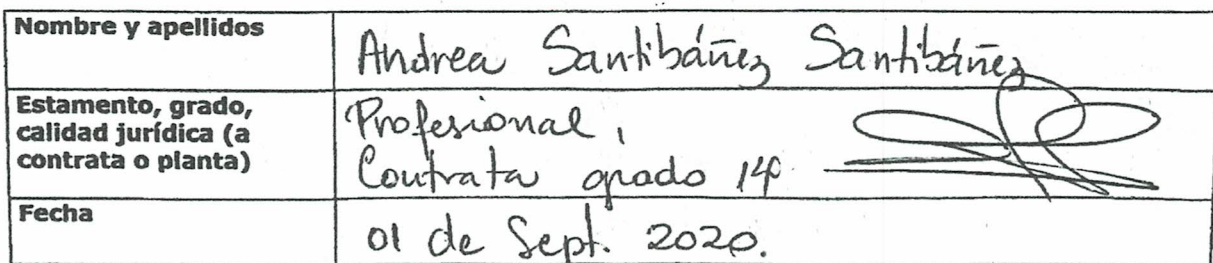 Nombre y apellidos
Andrea Santibáñez Santibáñez
Estamento, grado,
calidad jurídica (a
contrata o planta)
Profesional,
Contrata grado 14º
Fecha
01 de Sept. 2020.